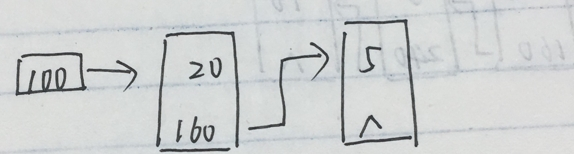 100
20
160
5
^